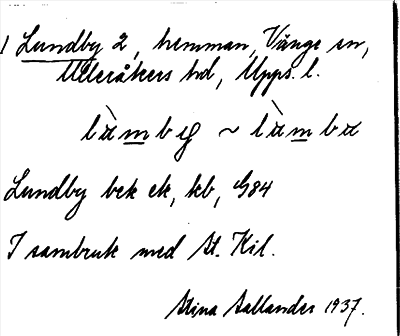 1 Lundby 2, hemman, Vänge sn,
Ulleråkers hd, Upps. l.
Lundby bek ek, kb, G84
I sambruk med St. Kil.
Stina Sallander 1937.